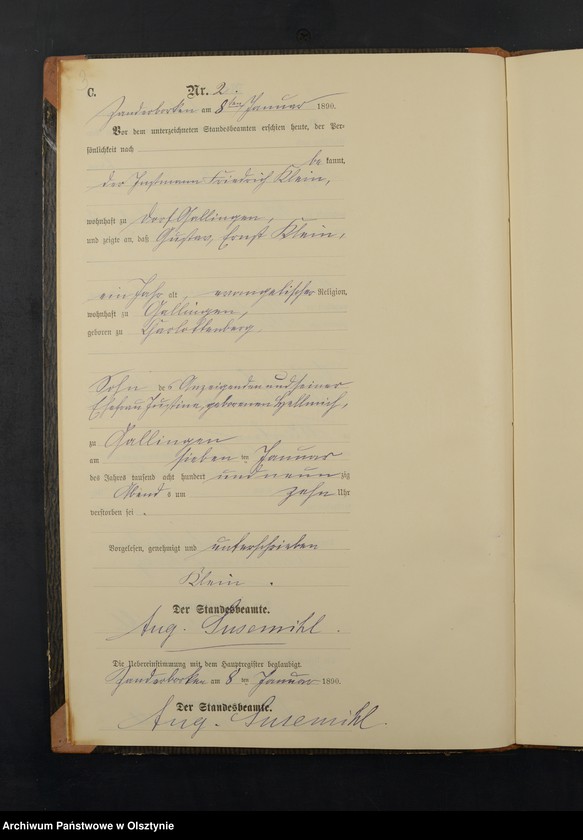 C.
Nr. 2.
Zanderborken am 8ten Januar 1890.
Vor dem unterzeichneten Standesbeamten erschien heute, der Per-
sönlichkeit nach
be kannt,
der Instmann Friedrich Klein,
wohnhaft zu Dorf Gallingen,
und zeigte an, daß Gustav, Ernst Klein,
ein Jahr alt, evangelischer Religion,
wohnhaft zu Gallingen,
geboren zu Charlottenberg
Sohn des Anzeigenden und seiner
Ehefrau Justine, geborenen Hellmich,
zu Gallingen
am sieben ten Januar
des Jahres tausend acht hundert und neun zig
Abend s um zehn Uhr
verstorben sei .
Vorgelesen, genehmigt und unterschrieben
Klein .
Der Standesbeamte.
Aug. Susemihl .
Die Uebereinstimmung mit dem Hauptregister beglaubigt.
Zanderborken am 8 ten Januar 1890.
Der Standesbeamte.
Aug. Susemihl.
Archiwum Państwowe w Olsztynie